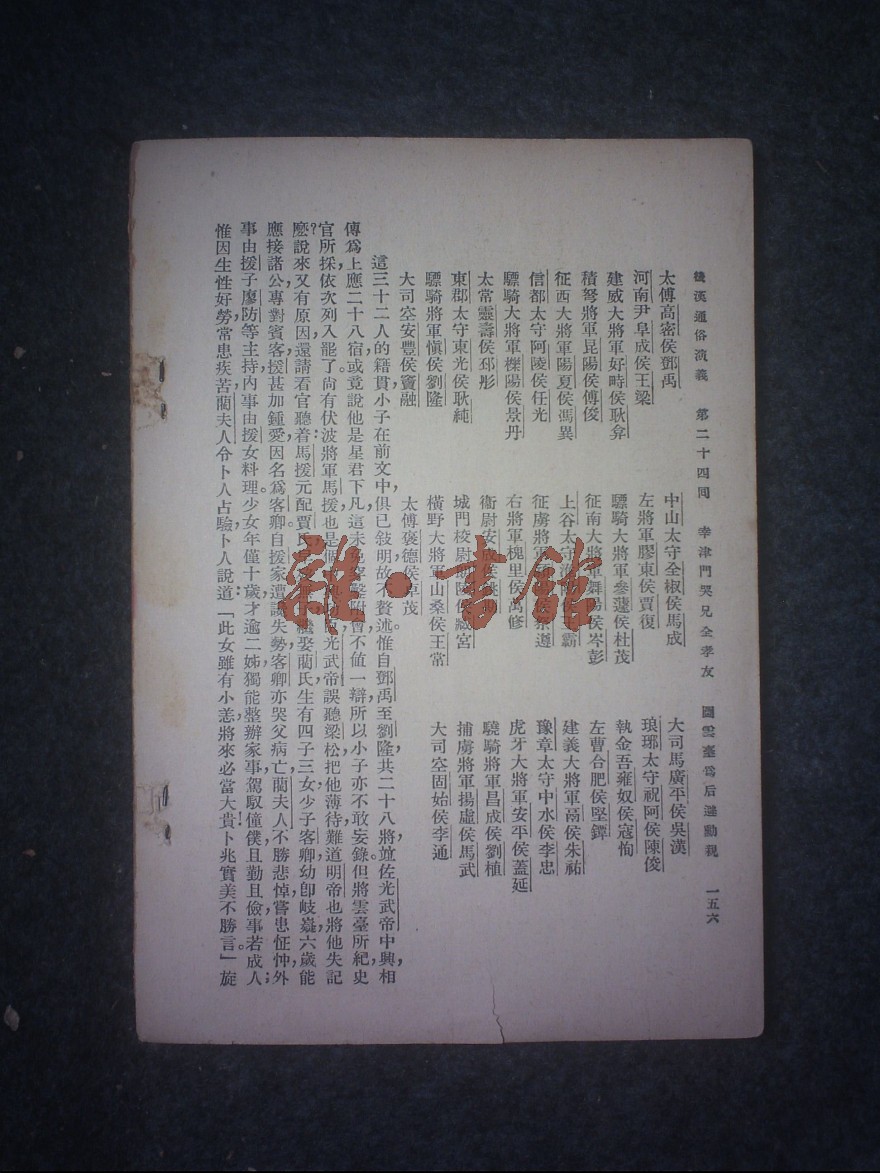 後漢通俗演義　第二十四回　幸津門哭兄全孝友　圖雲臺爲后避勳親　一五六
太傅高密侯鄧禹　中山太守全椒侯馬成　大司馬廣平侯吳漢
河南尹阜成侯王梁　左將軍膠東侯賈復　琅琊太守祝阿侯陳俊
建威大將軍好畤侯耿弇　驃騎大將軍參蘧侯杜茂　執金吾雍奴侯寇恂
積弩將軍昆陽侯傅俊　征南大將軍舞陽侯岑彭　左曹合肥侯堅鐔
征西大將軍陽夏侯馮異　上谷太守淮陵侯王霸　建義大將軍鬲侯朱祐
信都太守阿陵侯任光　征虜將軍侯祭遵　豫章太守中水侯李忠
驃騎大將軍櫟陽侯景丹　右將軍槐里侯萬修　虎牙大將軍安平侯蓋延
太常靈壽侯邳彤　衞尉安成侯　驍騎將軍昌成侯劉植
東郡太守東光侯耿純　城門校尉侯臧宮　捕虜將軍揚虛侯馬武
驃騎將軍愼侯劉隆　橫野大將軍山桑侯王常　大司空固始侯李通
大司空安豐侯竇融　太傅褒德侯卓茂
這三十二人的籍貫，小子在前文中，俱已敍明，故不贅述。惟自鄧禹至劉隆，共二十八將，竝佐光武帝中興，相
傳爲上應二十八宿，或竟說他是星君下凡，這未免穿鑿附會，不値一辯，所以小子亦不敢妄錄，但將雲臺所紀，史
官所採，依次列入罷了。尙有伏波將軍馬援，也是光武帝誤聽梁松，把他薄待，難道明帝也將他失記
麽？說來又有原因，還請看官聽着：馬援元配賈氏繼娶藺氏，生有四子三女，少子客卿，幼卽岐嶷，六歲能
應接諸公，專對賓客，援甚加鍾愛，因名爲客卿。自援家遭讒失勢，客卿亦哭父病亡，藺夫人不勝悲悼，嘗患怔忡，外
事由援子廖防等主持，內事由援女料理。少女年僅十歲，才逾二姊，獨能整辦家事，駕馭僮僕，且勤且儉，事若成人；
惟因生性好勞，常患疾苦，藺夫人令卜人占驗，卜人說道：「此女雖有小恙，將來必當大貴，卜兆實美不勝言！」旋